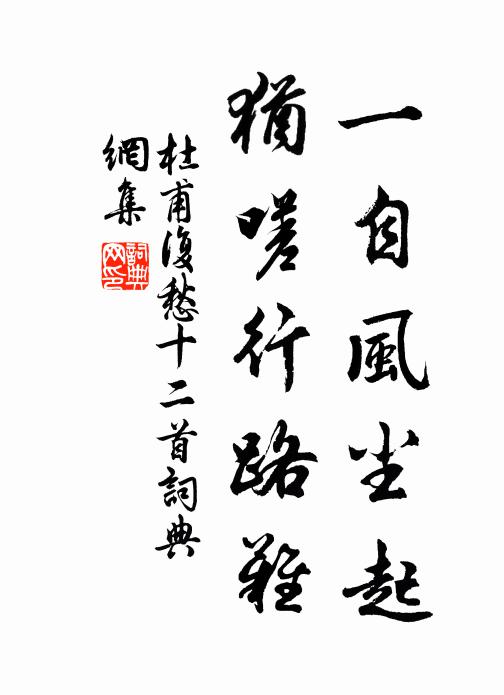 一自風尘起
猶嗟行路難
杜甫復愁十二首詞典
網集
詞典网印